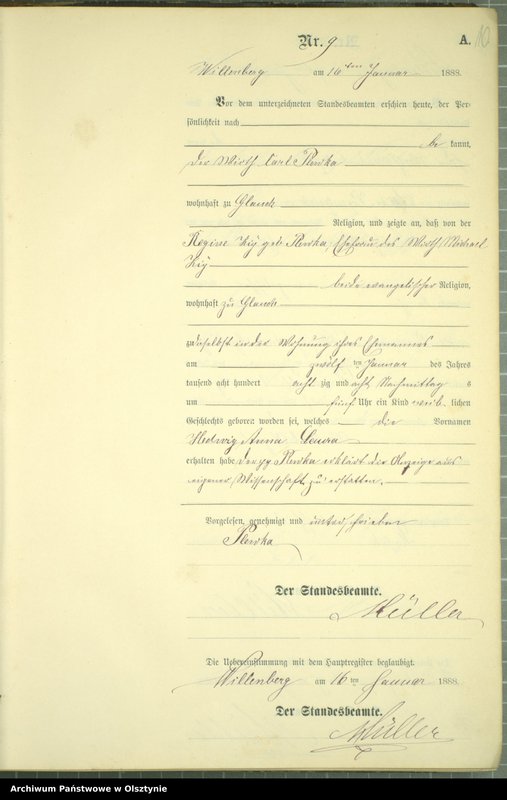 Nr. 9
A.
10
Willenberg am 16 ten Januar 1888.
Vor dem unterzeichneten Standesbeamten erschien heute, der Per-
sönlichkeit nach
be kannt,
der Wirth Carl Plewka
wohnhaft zu
Religion, und zeigte an, daß von der
Regine geb. Plewka, Ehefrau des Wirth Michael
beide evangelischer Religion,
wohnhaft zu
zu daselbst in der Wohnung ihres Ehemannes
am zwölf ten Januar des Jahres
tausend acht hundert acht zig und acht Nachmittag s
um fünf Uhr ein Kind weib lichen
Geschlechts geboren worden sei, welches die Vornamen
Hedwig Anna
erhalten habe. Plewka erklärt die Anzeige aus
eigener Wissenschaft zu erstatten.
Vorgelesen, genehmigt und unterschrieben
Plewka
Der Standesbeamte.
Müller
Die Uebereinstimmung mit dem Hauptregister beglaubigt.
Willenberg am 16 ten Januar 1888.
Der Standesbeamte.
Müller
Archiwum Państwowe w Olsztynie